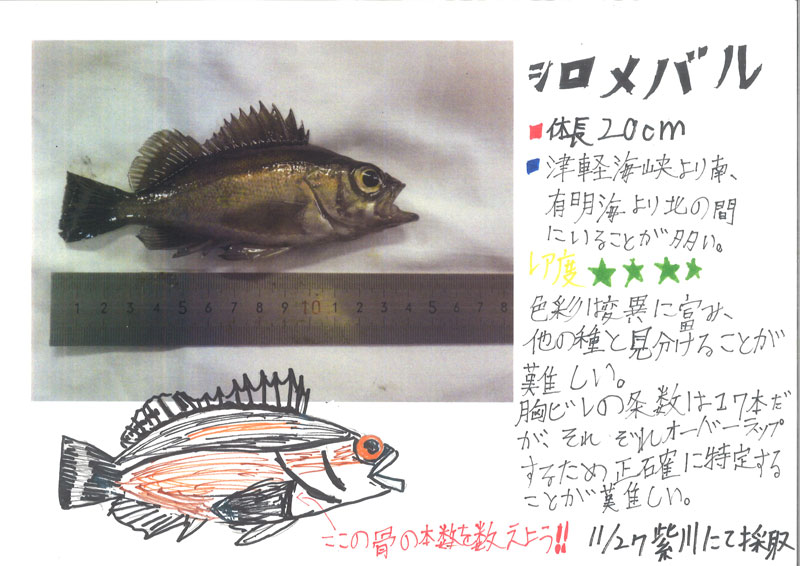 シロメバル
体長20cm
津軽海峡より南、
有明海より北の間
にいることが多い。
レア度★★★★
色彩は変異に富み、
他の種と見分けることが
難しい。
胸ビレの条数は17本だ
が、それぞれオーバーラップ
するため正確に特定する
ことが難しい。
1 2 3 4 5 6 7 8 9 10 1 2 3 4 5 6 7 8
ここの骨の本数を数えよう!!
11/27紫川にて採取